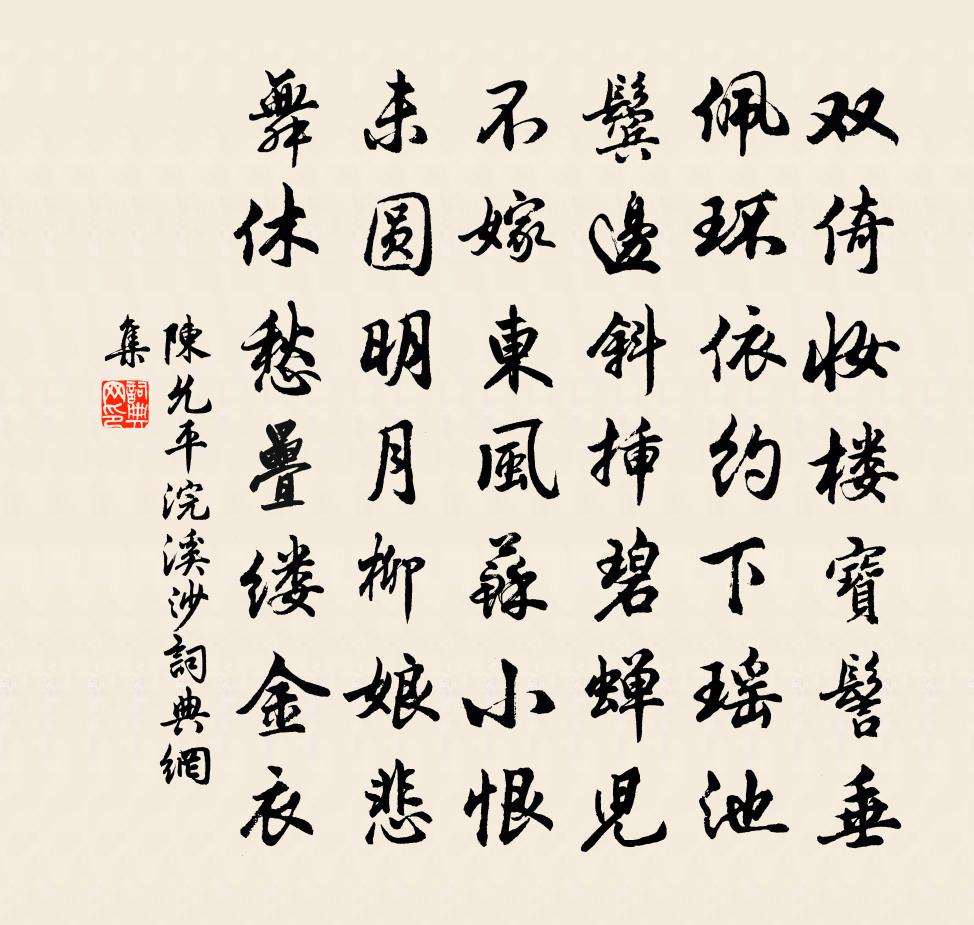 双倚妆楼寶髻垂
佩环依约下瑶池
鬓邊斜揷碧蝉児
不嫁東風蘇小恨
未圆明月柳娘悲
舞休愁疊缕金衣
陳允平浣溪沙詞典網
集
詞典
网印